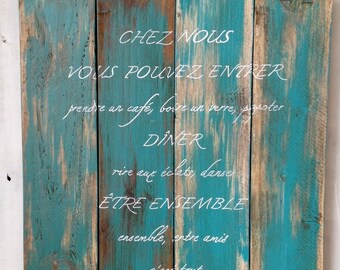 CHEZ NOUS
VOUS POUVEZ ENTRER
prendre un café, boire un verre, papoter
DÎNER
rire aux éclats, danser
ÊTRE ENSEMBLE
ensemble, entre amis